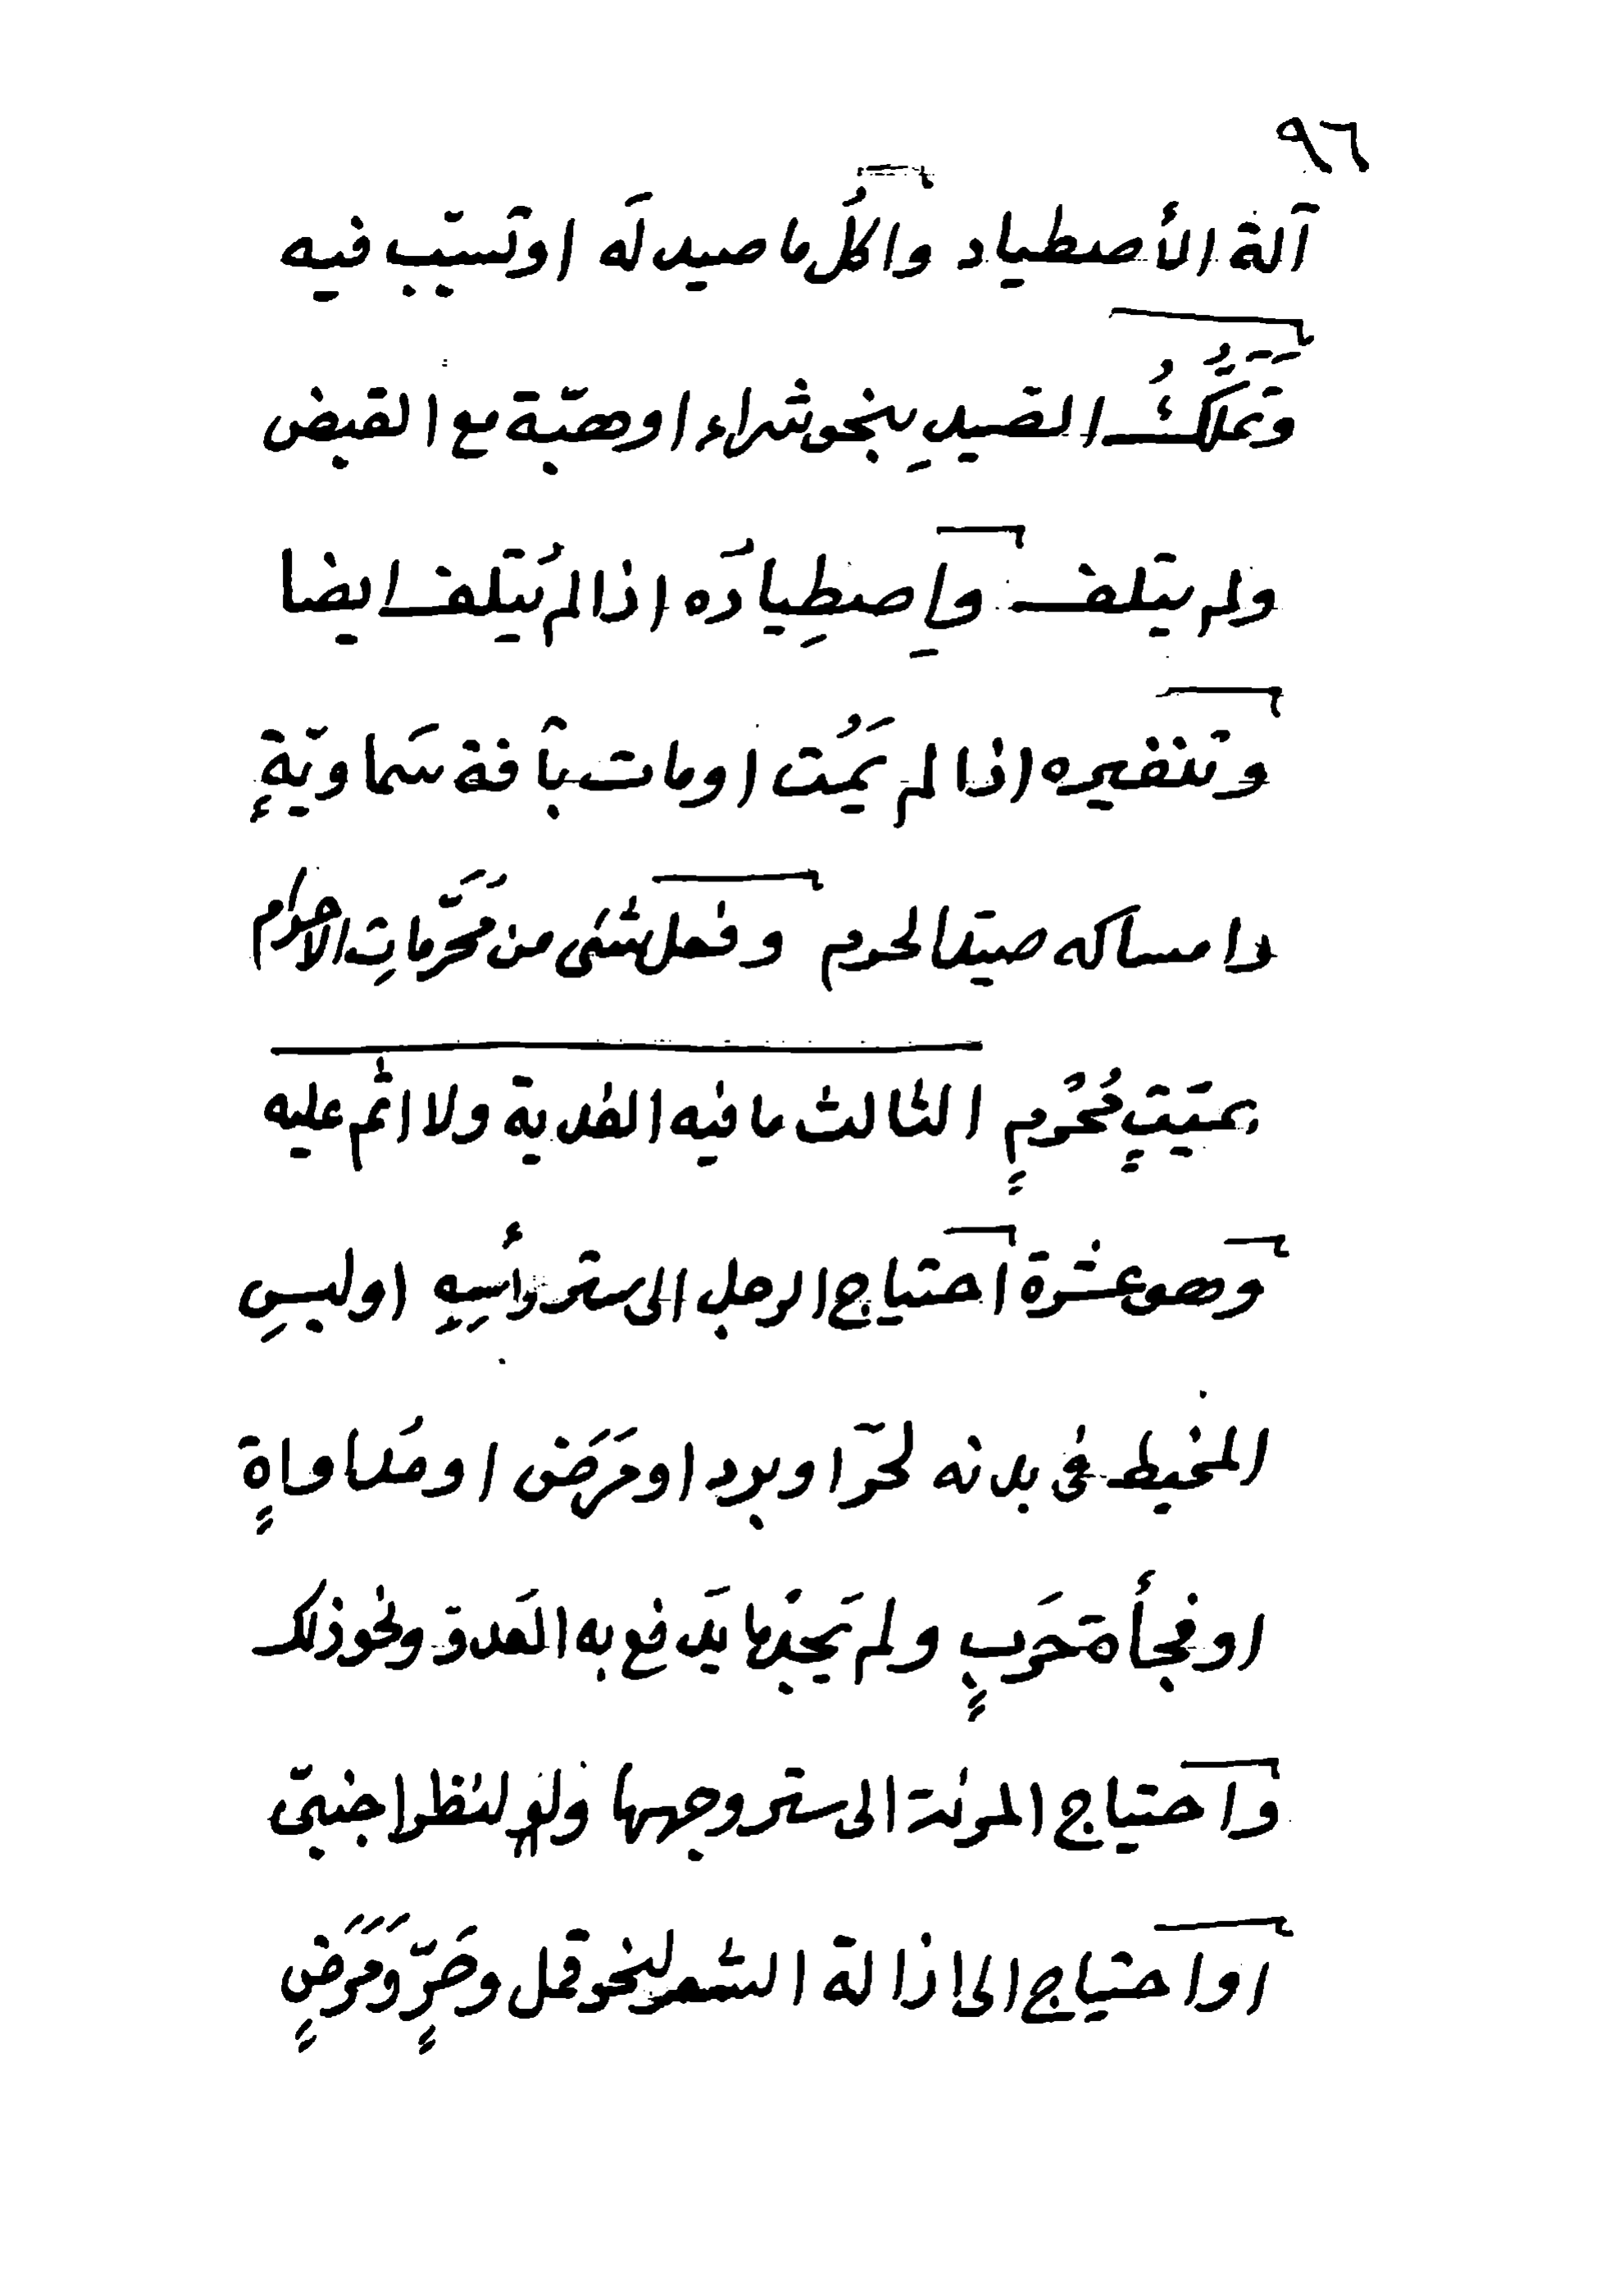 ٩٦
آلة الأصطياد واكلُ ما صيد لَه او تَسبّب فيه
وتَمَلُّكُ الصّيدِ بنحو شراء او هبَة مع القبض
ولم يتلف واِصطِيادَه اذا لم يُتلف ايضا
وتنفيره اذا لم يَمُت او مات بآفة سَماويّةٍ
وامساكه صيدَ الحرم وفعل شئى من مُحَرَّماتِ الاحرام
بمَيّتٍ مُحْرُمٍ الثالث ما فيه الفدية ولا اثم عليه
وهو عشرة احتياج الرجل الى ستر رأسِهِ او لبسِ
المخيط فى بدنه لحَرّ او برد او مَرَض او مُداواةٍ
او فجأة حَربٍ ولم يَجِدْ ما يَدفع به العَدوّ ونحو ذلك
واحتياج المرئة الى ستر وجهها ولو لنظر اجنبىّ
او احتياج الى ازالة الشعر لنحو قمل وحَرٍّ ومَرَضٍ